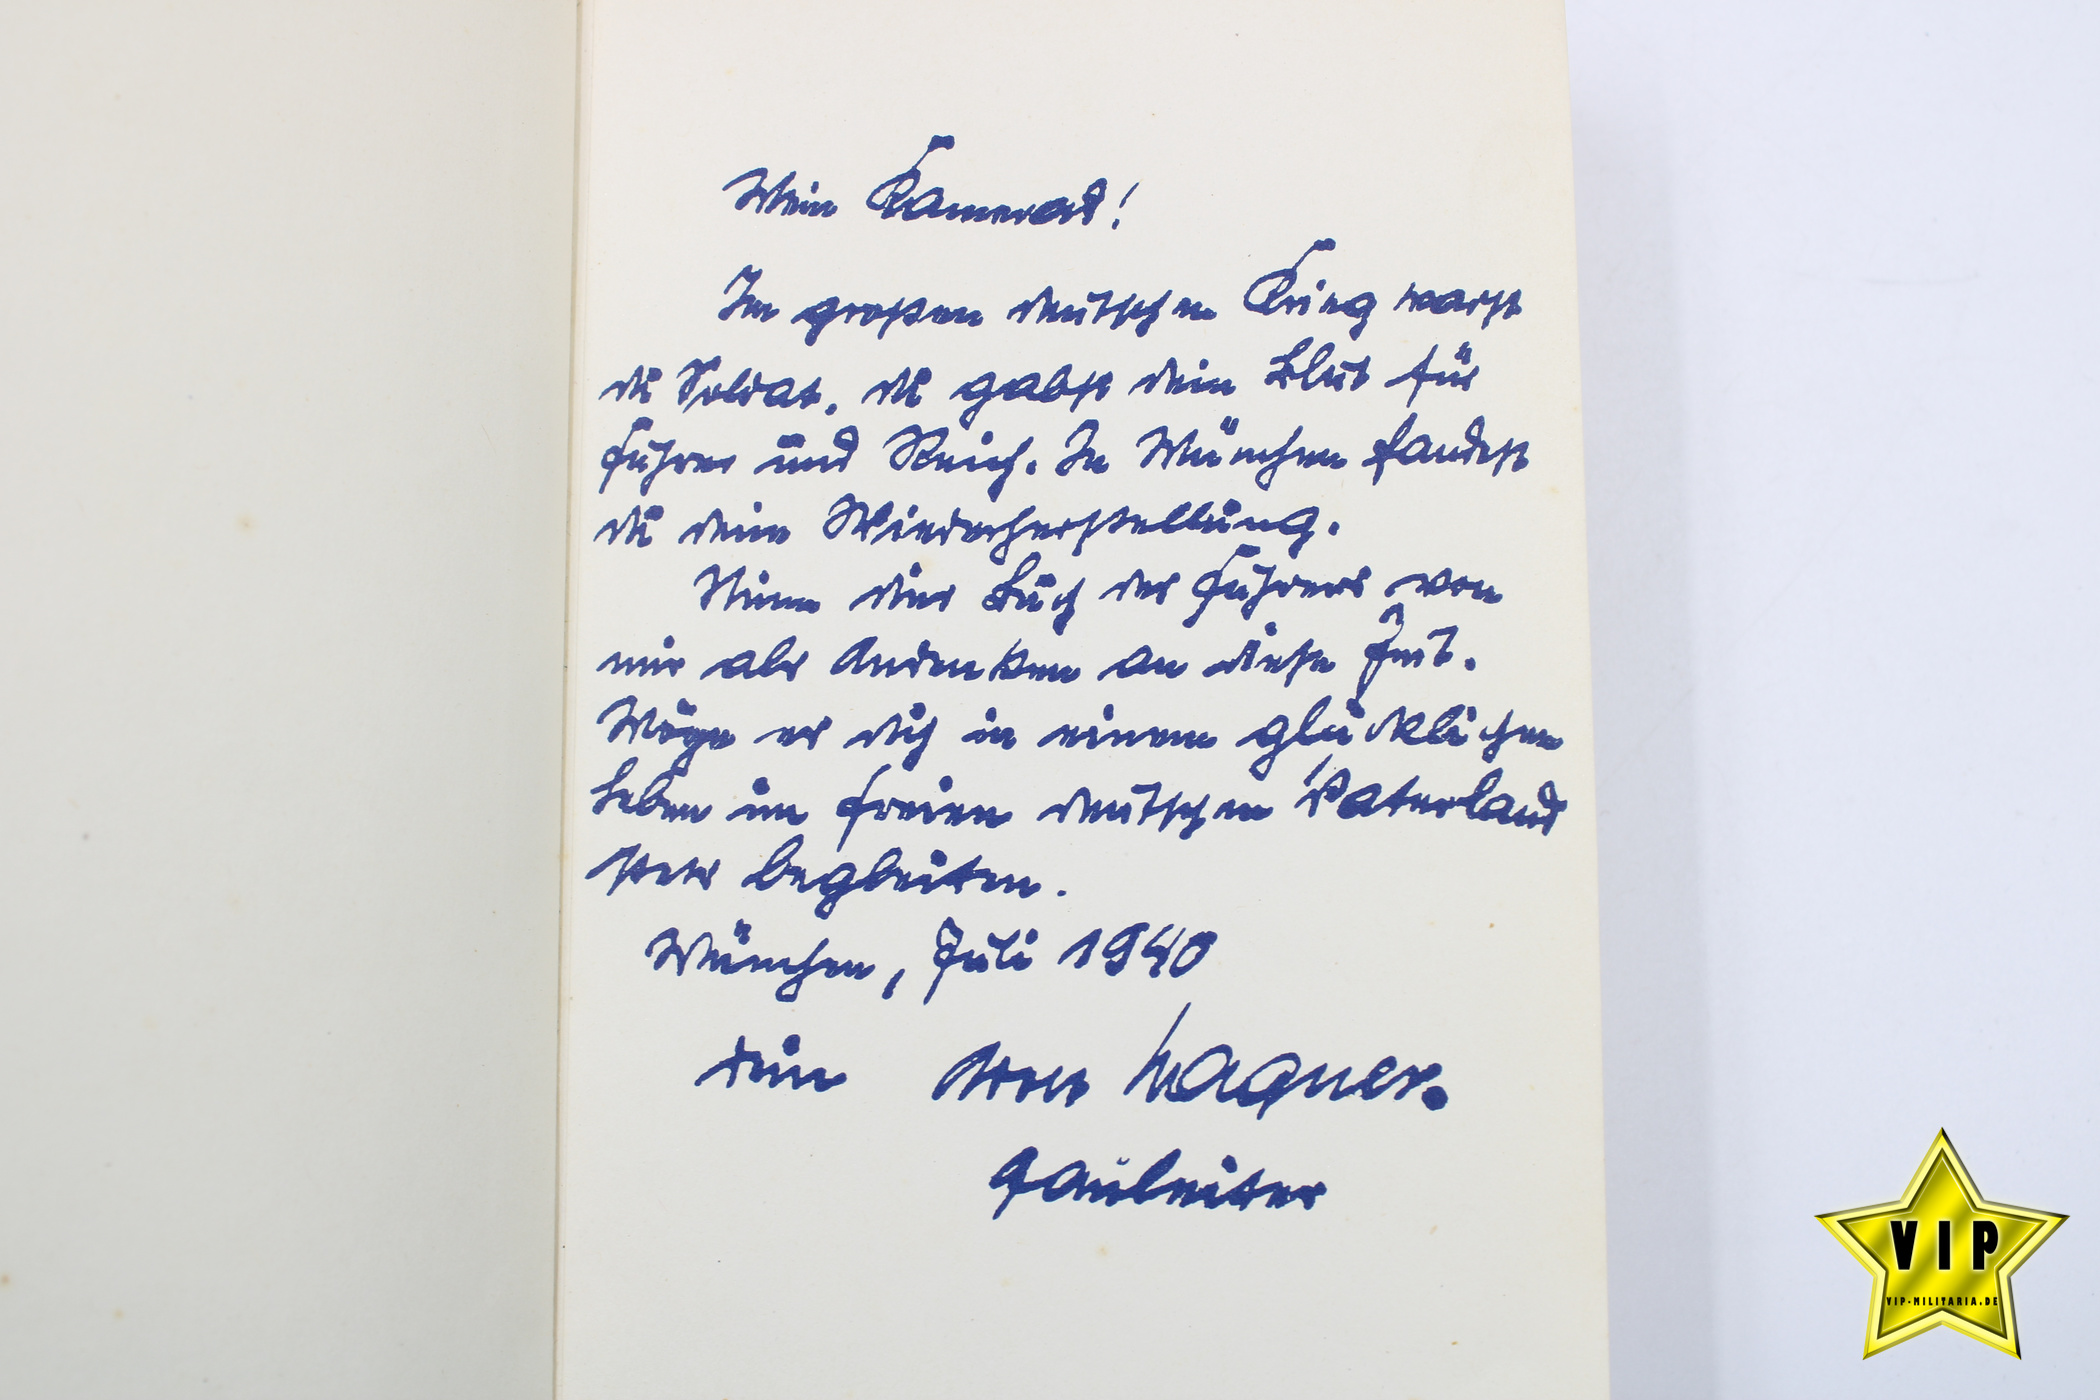 Mein Kamerad!
Im großen deutschen Krieg warst
du Soldat, du gabst dein Blut für
Führer und Reich. In München fandest
du deine Wiederherstellung.
Nimm dies Buch des Führers von
mir als Andenken an diese Zeit.
Möge es dich in einem glücklichen
Leben im freien deutschen Vaterland
stets begleiten.
München, Juli 1940
dein Wagner.
Gauleiter
VIP
VIP-MILITARIA.DE